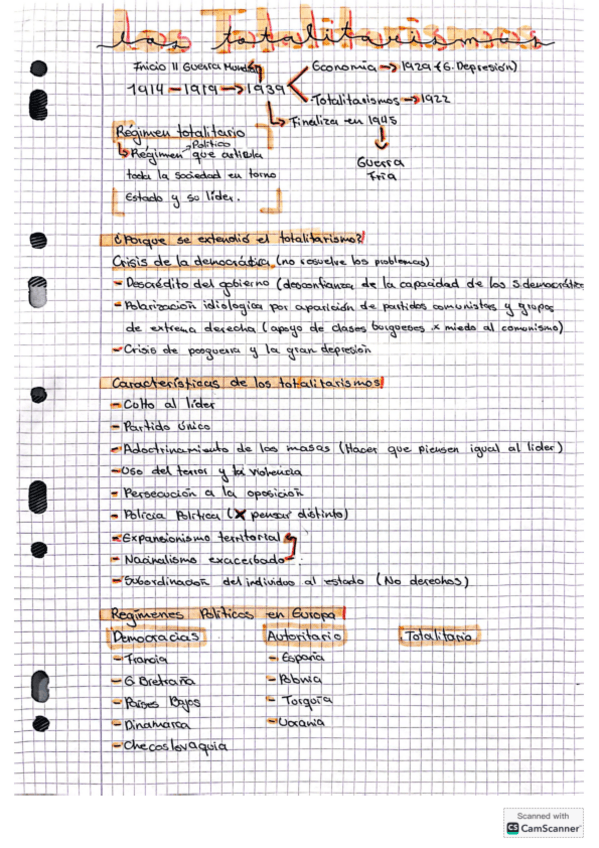 Los Totalitarismos
Inicio II Guerra Mundial
Economia → 1929 (G. Depresión)
1914 - 1919 → 1939
Totalitarismos → 1922
Finaliza en 1945
Guerra
Fria
Régimen totalitario
Político
Régimen que articula
toda la sociedad en torno
Estado y su líder.
¿Porque se extendió el totalitarismo?
Crisis de la democrática (no resuelve los problemas)
- Descrédito del gobierno (desconfianza de la capacidad de los S democrático
- Polarización idiologica por aparición de partidos comunistas y grupos
de extrema derecha (apoyo de clases burguesas x miedo al comunismo)
- Crisis de posguerra y la gran depresión
Características de los totalitarismos
- Culto al líder
- Partido único
- Adoctrinamiento de las masas (Hacer que piensen igual al lider)
- Uso del terror y la violencia
- Persecución a la oposición
- Policia Política (X pensar distinto)
- Expansionismo territorial
- Nacinalismo exacerbado
- Subordinación del individuo al estado (No derechos)
Regímenes Políticos en Europa
Democracias Autoritario Totalitario
- Francia - España
- G Bretraña - Polonia
- Países Bajos - Turquía
- Dinamarca - Ucrania
- Checoslovaquia
Scanned with
CS CamScanner